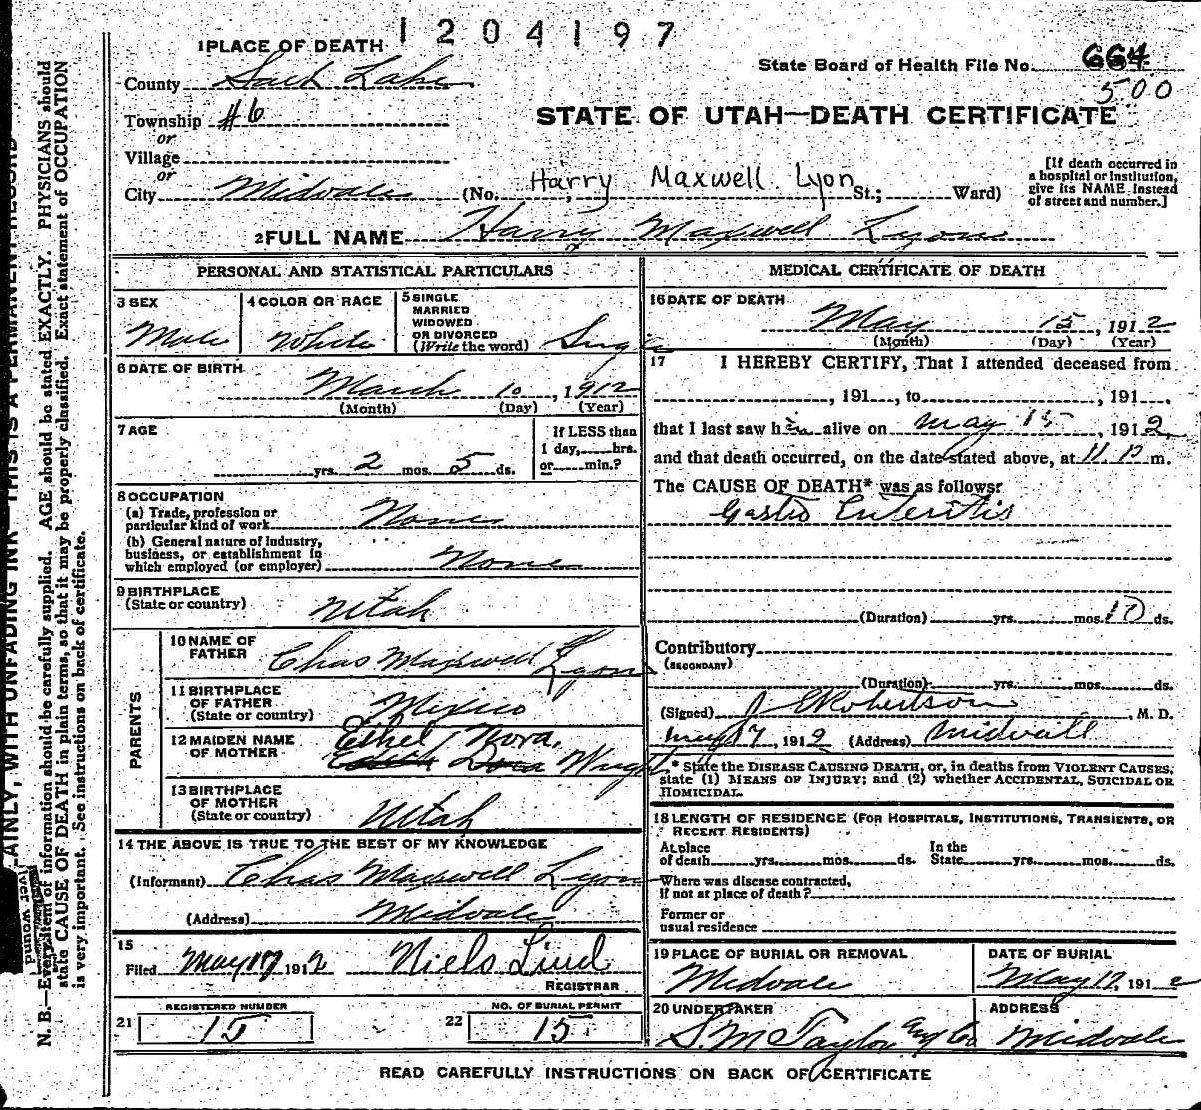 1204197
1 PLACE OF DEATH
State Board of Health File No. 664
500
County Salt Lake
Township #6
or
Village
or
City Midvale (No. Harry Maxwell Lyon St.; Ward)
STATE OF UTAH—DEATH CERTIFICATE
[If death occurred in
a hospital or institution,
give its NAME instead
of street and number.]
2 FULL NAME Harry Maxwell Lyon
PERSONAL AND STATISTICAL PARTICULARS
3 SEX
Male
4 COLOR OR RACE
White
5 SINGLE
MARRIED
WIDOWED
OR DIVORCED
(Write the word) Single
6 DATE OF BIRTH
March 10, 1912
(Month) (Day) (Year)
7 AGE
yrs. 2 mos. 5 ds.
If LESS than
1 day, hrs.
or min.?
8 OCCUPATION
(a) Trade, profession or
particular kind of work None
(b) General nature of industry,
business, or establishment in
which employed (or employer) None
9 BIRTHPLACE
(State or country) Utah
PARENTS
10 NAME OF
FATHER Chas Maxwell Lyon
11 BIRTHPLACE
OF FATHER
(State or country) Mexico
12 MAIDEN NAME
OF MOTHER Ethel Nora Wright
13 BIRTHPLACE
OF MOTHER
(State or country) Utah
14 THE ABOVE IS TRUE TO THE BEST OF MY KNOWLEDGE
(Informant) Chas Maxwell Lyon
(Address) Midvale
15
Filed May 17 1912 Niels Lind
REGISTRAR
REGISTERED NUMBER
21 15
NO. OF BURIAL PERMIT
22 15
MEDICAL CERTIFICATE OF DEATH
16 DATE OF DEATH
May 15, 1912
(Month) (Day) (Year)
17 I HEREBY CERTIFY, That I attended deceased from
, 191 , to , 191 ,
that I last saw him alive on May 15, 1912
and that death occurred, on the date stated above, at 11 P m.
The CAUSE OF DEATH* was as follows:
Gastro Enteritis
(Duration) yrs. mos. 10 ds.
Contributory
(SECONDARY)
(Duration) yrs. mos. ds.
(Signed) J. E. Robertson, M. D.
May 17, 1912 (Address) Midvall
* State the DISEASE CAUSING DEATH, or, in deaths from VIOLENT CAUSES,
state (1) MEANS OF INJURY; and (2) whether ACCIDENTAL, SUICIDAL OR
HOMICIDAL.
18 LENGTH OF RESIDENCE (FOR HOSPITALS, INSTITUTIONS, TRANSIENTS, OR
RECENT RESIDENTS)
At place
of death yrs. mos. ds.
In the
State yrs. mos. ds.
Where was disease contracted,
if not at place of death?
Former or
usual residence
19 PLACE OF BURIAL OR REMOVAL
Midvale
DATE OF BURIAL
May 17, 1912
20 UNDERTAKER
S M Taylor Co
ADDRESS
Midvale
READ CAREFULLY INSTRUCTIONS ON BACK OF CERTIFICATE
AINLY, WITH UNFADING INK—THIS IS A PERMANENT RECORD
N. B.—Every item of information should be carefully supplied. AGE should be stated EXACTLY. PHYSICIANS should
state CAUSE OF DEATH in plain terms, so that it may be properly classified. Exact statement of OCCUPATION
is very important. See instructions on back of certificate.